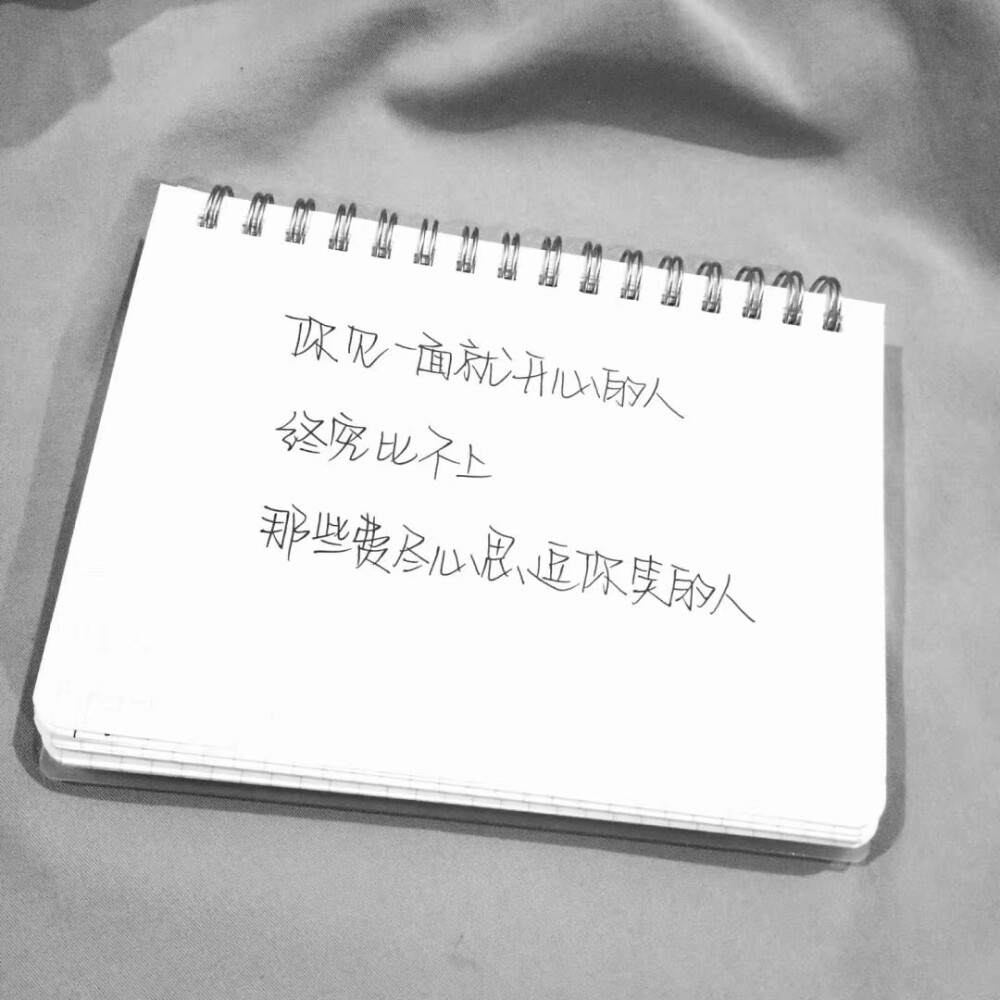 你见一面就开心的人
终究比不上
那些费尽心思逗你笑的人